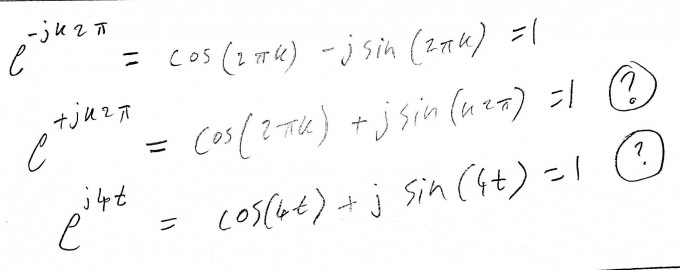 e^{-jk2π} = cos(2πk) - j sin(2πk) = 1
e^{+jk2π} = cos(2πk) + j sin(k2π) = 1 (?)
e^{j4t} = cos(4t) + j sin(4t) = 1 (?)